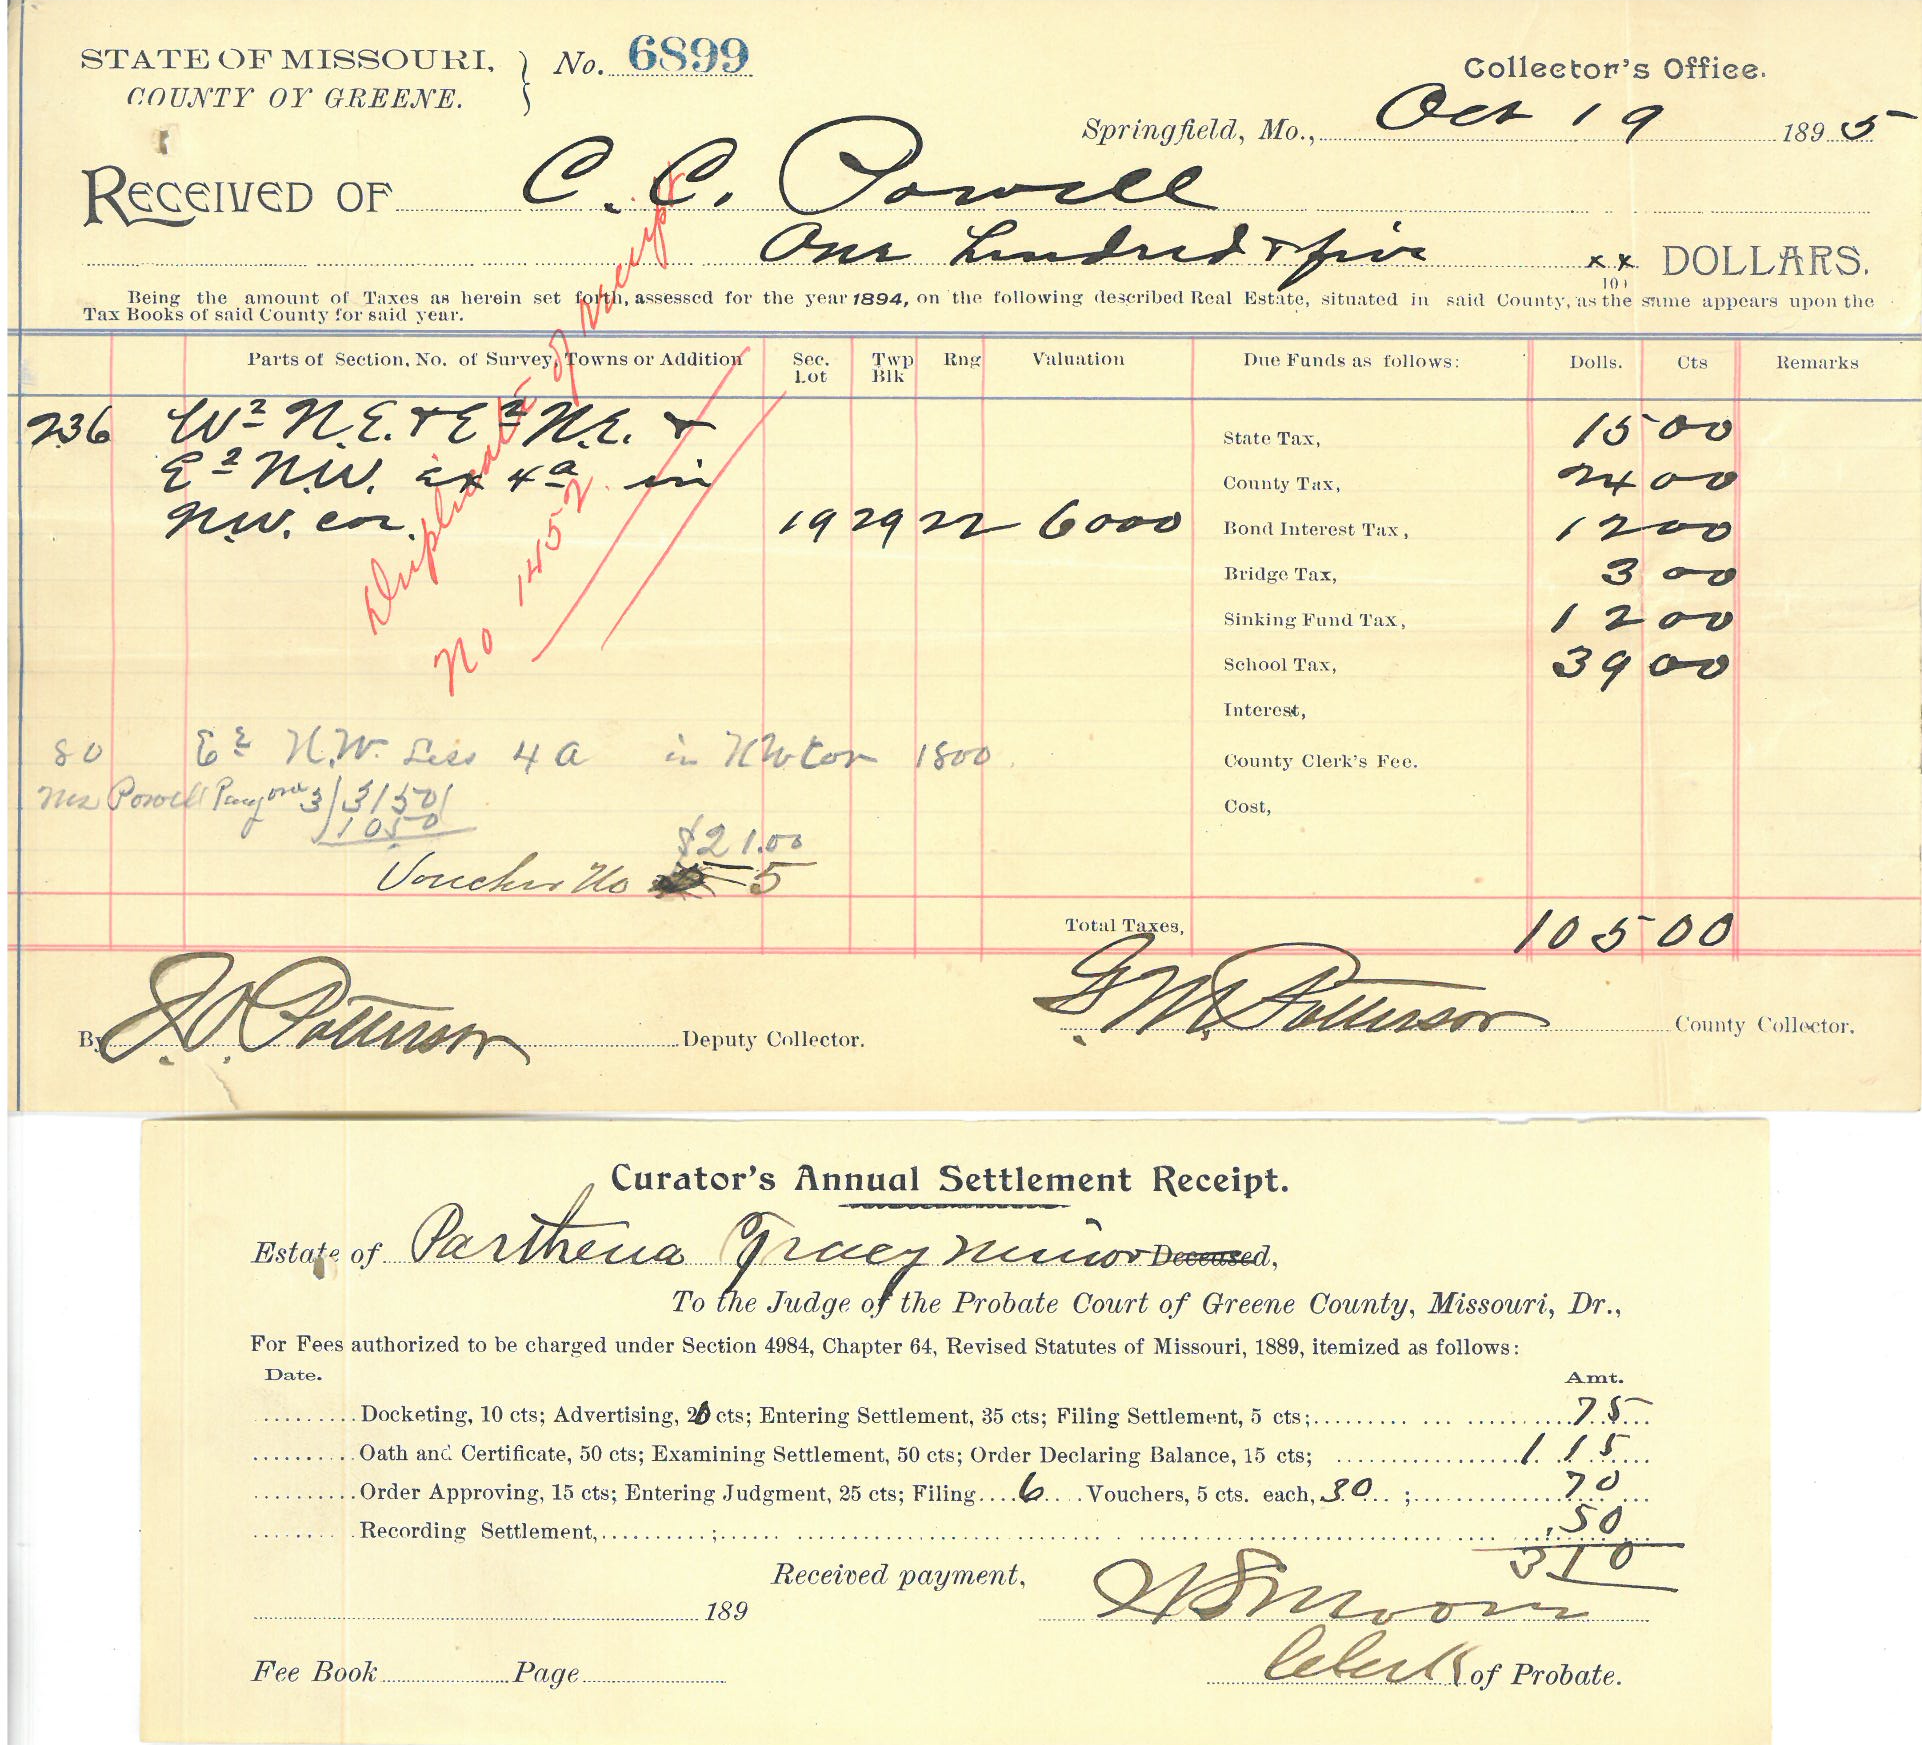 STATE OF MISSOURI,
COUNTY OY GREENE.
No. 6899
Collector's Office.
Springfield, Mo., Oct 19 1895
RECEIVED OF C. C. Powell
One Hundred & five xx DOLLARS.
100
Being the amount of Taxes as herein set forth, assessed for the year 1894, on the following described Real Estate, situated in said County, as the same appears upon the
Tax Books of said County for said year.
Duplicate of receipt
No 1452
Parts of Section, No. of Survey, Towns or Addition Sec. Lot Twp Blk Rng Valuation Due Funds as follows: Dolls. Cts Remarks
236 W2 N.E. & E2 N.E. & State Tax, 15 00
E2 N.W. ex 4a in County Tax, 24 00
N.W. cor. 19 29 22 6000 Bond Interest Tax, 12 00
Bridge Tax, 3 00
Sinking Fund Tax, 12 00
School Tax, 39 00
Interest,
80 E2 N.W. Less 4 A in NW Cor 1800 County Clerk's Fee.
Powell 3/3150/ Cost,
1050
$21.00
Voucher No 5
Total Taxes, 105 00
By J. O. Patterson Deputy Collector.
G. M. Patterson County Collector.
Curator's Annual Settlement Receipt.
Estate of Parthena Tracy minor Deceased,
To the Judge of the Probate Court of Greene County, Missouri, Dr.,
For Fees authorized to be charged under Section 4984, Chapter 64, Revised Statutes of Missouri, 1889, itemized as follows:
Date. Amt.
Docketing, 10 cts; Advertising, 2 cts; Entering Settlement, 35 cts; Filing Settlement, 5 cts; 75
Oath and Certificate, 50 cts; Examining Settlement, 50 cts; Order Declaring Balance, 15 cts; 1 15
Order Approving, 15 cts; Entering Judgment, 25 cts; Filing 6 Vouchers, 5 cts. each, 30 ; 70
Recording Settlement, ; .50
3 10
Received payment,
189
Moore
Clerk of Probate.
Fee Book Page